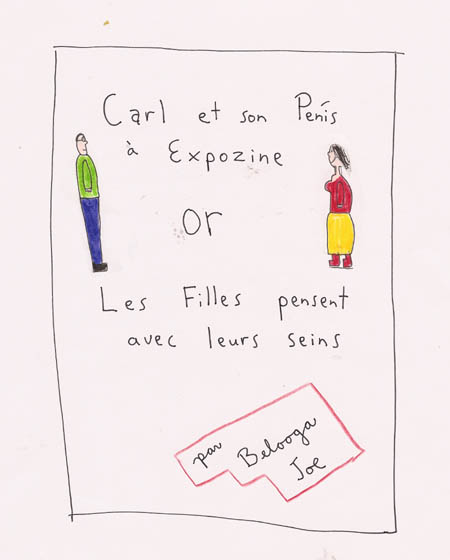 Carl et son Penis
à Expozine
Or
Les Filles pensent
avec leurs seins
par
Belooga
Joe